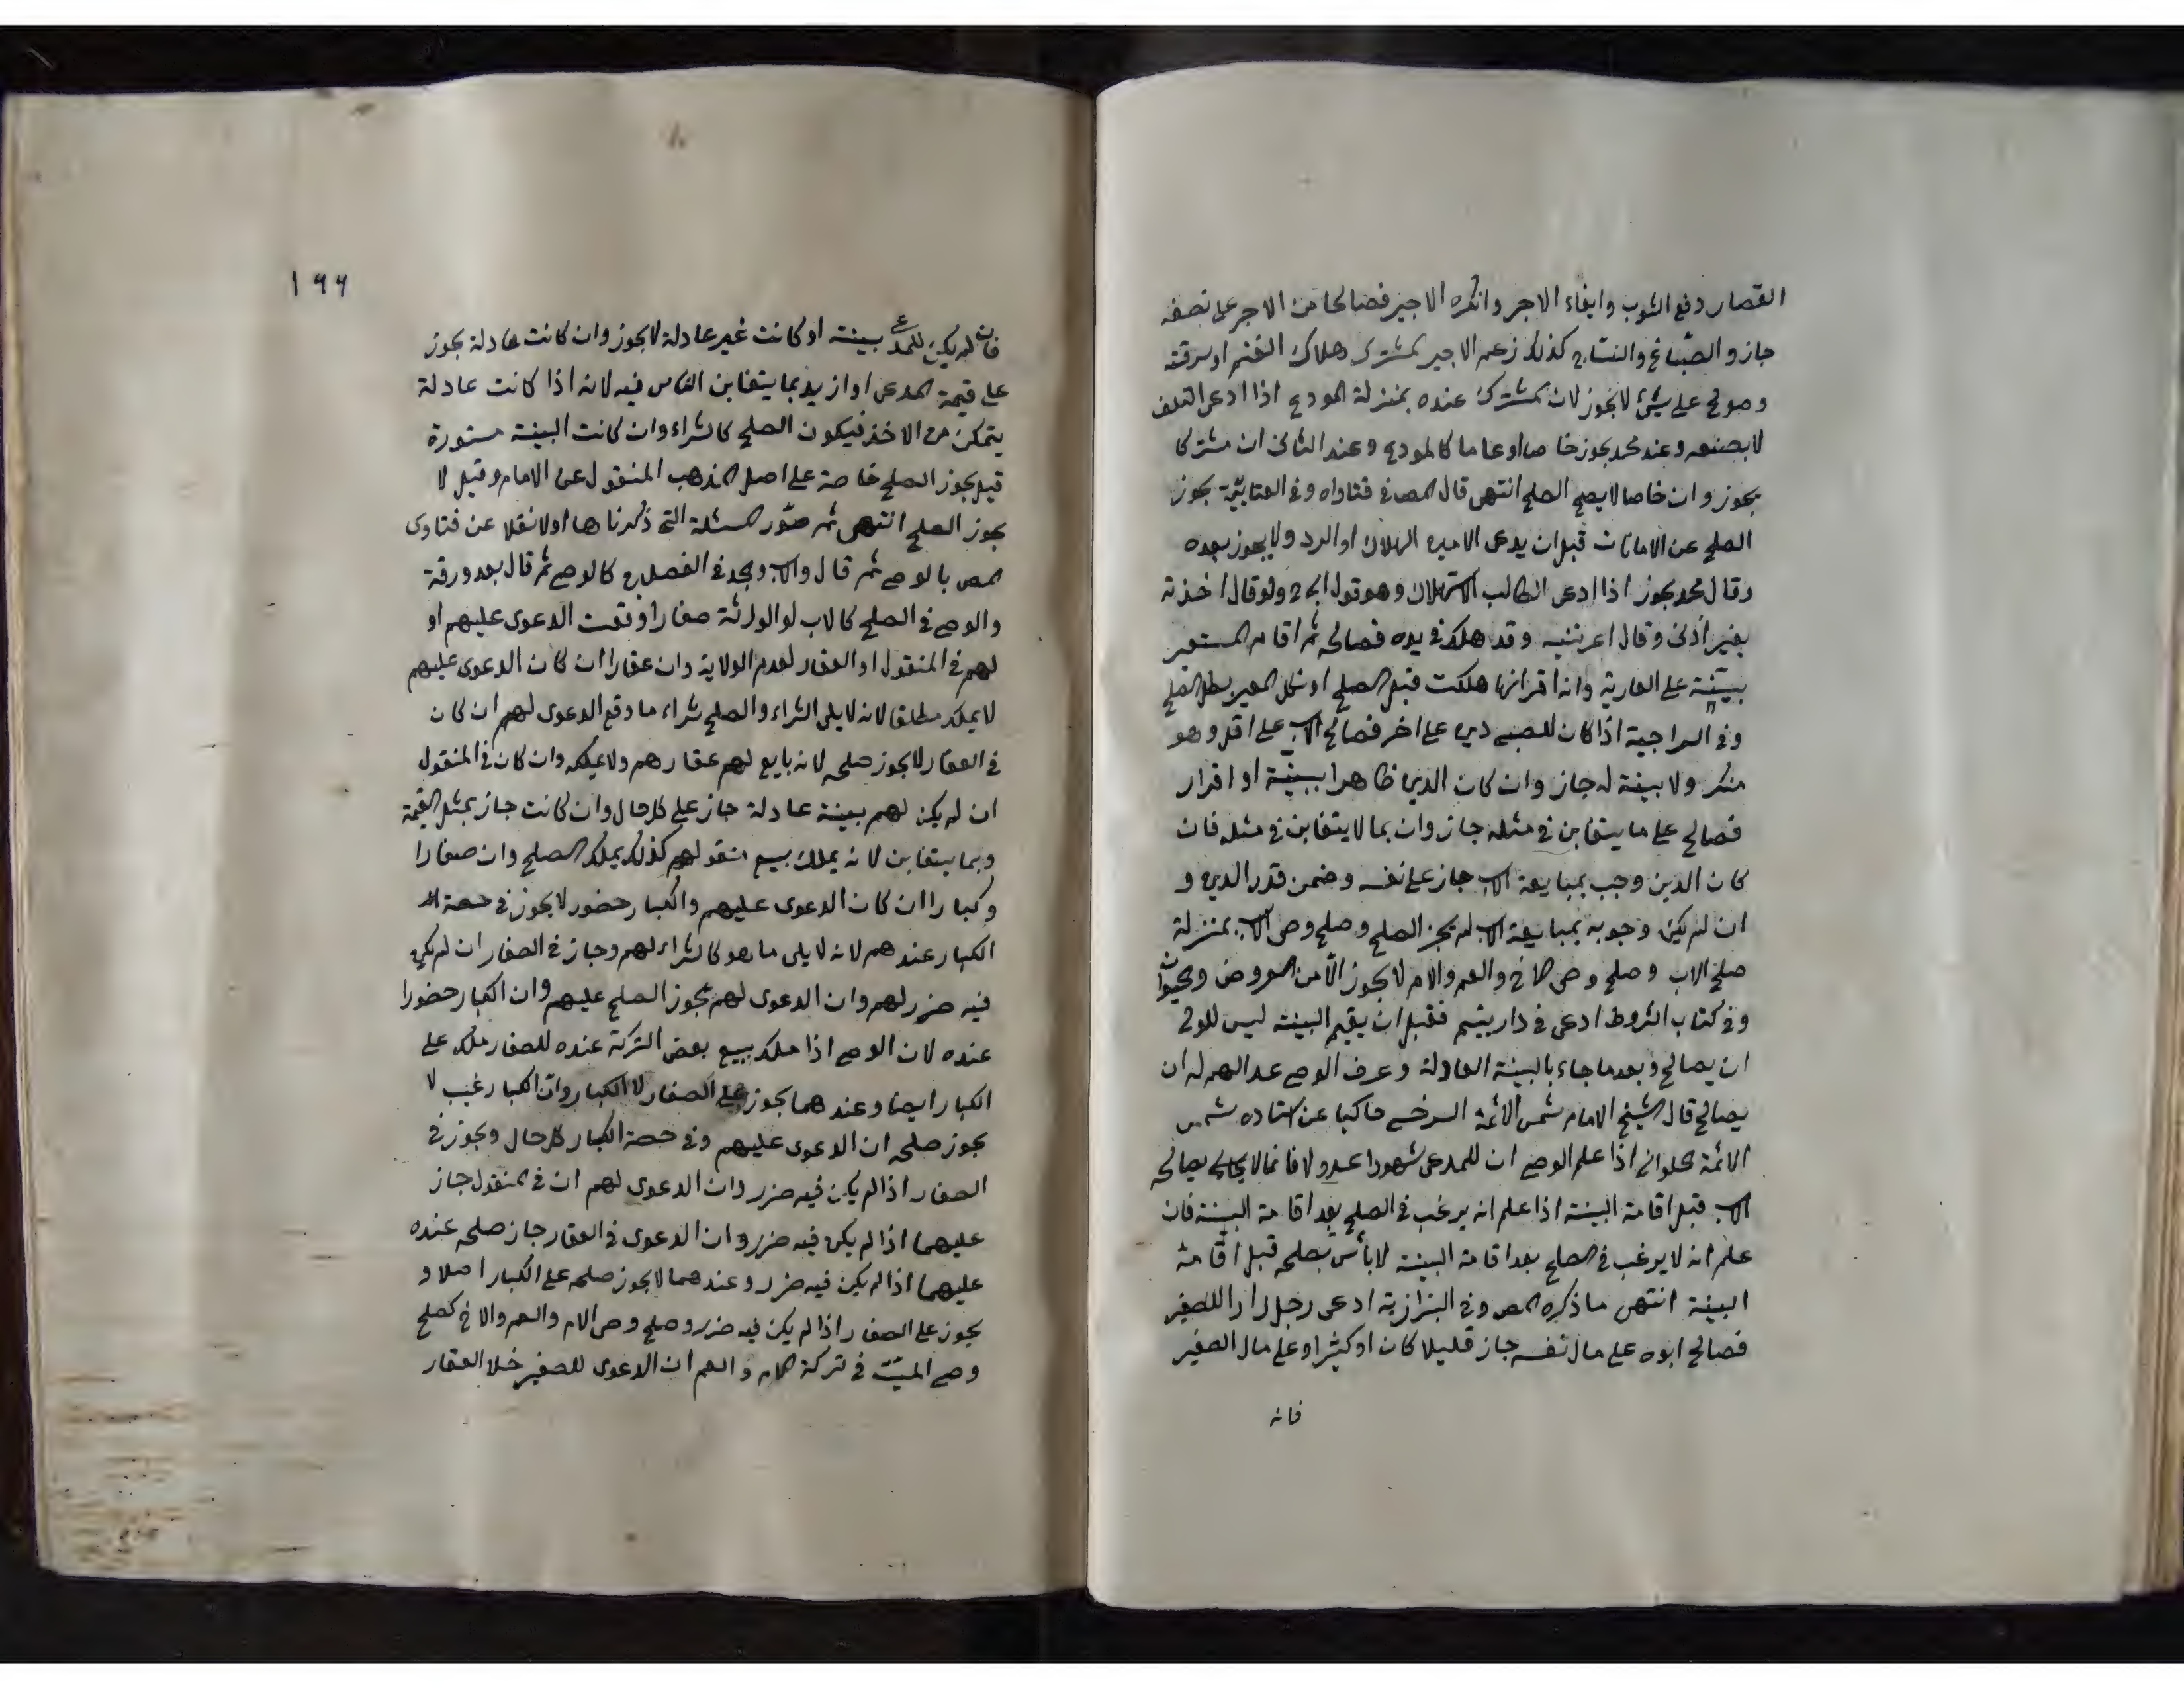 القصار دفع الثوب وايفاء الاجر وانكره الاجير فصالحا من الاجر على نصفه
جاز والصباغ والنساج كذلك زعم الاجير المشترك هلاك الغنم او سرقته
وصولح على شيئ لا يجوز لان المشترك عنده بمنزلة المودع اذا ادعى التلف
لا بصنعه وعند محمد يجوز خاصا او عاما كالمودع وعند الثانى ان مشتركا
يجوز وان خاصا لا يصح الصلح انتهى قال المص فى فتاواه وفى العتابيّة يجوز
الصلح عن الامانات قبل ان يدعى الامين الهلاك او الرد ولا يجوز بعده
وقال محمد يجوز اذا ادعى الطالب الاستهلاك وهو قول ابى ولو قال اخذته
بغير اذنى وقال اعرتنيه وقد هلك فى يده فصالحه ثم اقام المستعير
بيّنة على العارية وانه اقر انها هلكت قبل الصلح او نكل المعير بطل الصلح
وفى السراجية اذا كان للصبى دين على اخر فصالح الاب على اقل وهو
منكر ولا بينة له جاز وان كان الدين ظاهرا ببيّنة او اقرار
فصالح على ما يتغابن فى مثله جاز وان بما لا يتغابن فى مثله فان
كان الدين وجب بمبايعة الاب جاز على نفسه وضمن قدر الدين و
ان لم يكن وجوبه بمبايعة الاب لم يجز الصلح وصلح وصى الاب بمنزلة
صلح الاب وصلح وصى الاخ والعم والام لا يجوز الّا من العروض والحيوان
وفى كتاب الشروط ادعى فى دار يتيم فقبل ان يقيم البينة ليس للوصى
ان يصالح وبعد ما جاء بالبينة العادلة وعرف الوصى عدالتهم له ان
يصالح قال الشيخ الامام شمس الائمة السرخسى حاكيا عن استاده شمس
الائمة الحلوانى اذا علم الوصى ان للمدعى شهودا عدولا فانما يصالح
الاب قبل اقامة البينة اذا علم انه يرغب فى الصلح بعد اقامة البينة فان
علم انه لا يرغب فى الصلح بعد اقامة البينة لا بأس بصلحه قبل اقامة
البينة انتهى ما ذكره المص وفى البزازية ادعى رجل دارا للصغير
فصالح ابوه على مال نفسه جاز قليلا كان او كثيرا وعلى مال الصغير
فانه
١٩٩
فان لم يكن للمدعى بينة او كانت غير عادلة لا يجوز وان كانت عادلة يجوز
على قيمة المدعى او ازيد بما يتغابن الناس فيه لانه اذا كانت عادلة
يتمكن من الاخذ فيكون الصلح كالشراء وان كانت البينة مستورة
قيل يجوز الصلح خاصة على اصل المذهب المنقول عن الامام وقيل لا
يجوز الصلح انتهى ثم صّور المسئلة التى ذكرناها اولا نقلا عن فتاوى
المص بالوصى ثم قال والاب والجد فى الفصل كالوصى ثم قال بعد ورقة
والوصى فى الصلح كالاب لو الورثة صغارا وقعت الدعوى عليهم او
لهم فى المنقول او العقار لعدم الولاية وان عقارا ان كان الدعوى عليهم
لا يملكه مطلقا لانه لا يلى الشراء والصلح شراء ما وقع الدعوى لهم ان كان
فى العقار لا يجوز صلحه لانه بايع لهم عقارهم ولا يملكه وان كان فى المنقول
ان لم يكن لهم بينة عادلة جاز على كل حال وان كانت جاز بمثل القيمة
وبما يتغابن لانه يملك بيع منقولهم كذلك يملك الصلح وان صغارا
وكبارا ان كان الدعوى عليهم والكبار حضور لا يجوز فى حصة
الكبار عندهم لانه لا يلى ما هو كالشراء لهم وجاز فى الصغار ان لم يكن
فيه ضرر لهم وان الدعوى لهم يجوز الصلح عليهم وان الكبار حضورا
عنده لان الوصى اذا ملك بيع بعض التركة عنده للصغار ملك على
الكبار ايضا وعندهما يجوز على الصغار لا الكبار وان الكبار غيب لا
يجوز صلحه ان الدعوى عليهم وفى حصة الكبار كل حال ويجوز فى
الصغار اذا لم يكن فيه ضرر وان الدعوى لهم ان فى المنقول جاز
عليهما اذا لم يكن فيه ضرر وان الدعوى فى العقار جاز صلحه عنده
عليهما اذا لم يكن فيه ضرر وعندهما لا يجوز صلحه على الكبار اصلا و
يجوز على الصغار اذا لم يكن فيه ضرر وصلح وصى الام والعم والاخ كصلح
وصى الميّت فى تركة الام والعم ان الدعوى للصغير خلا العقار